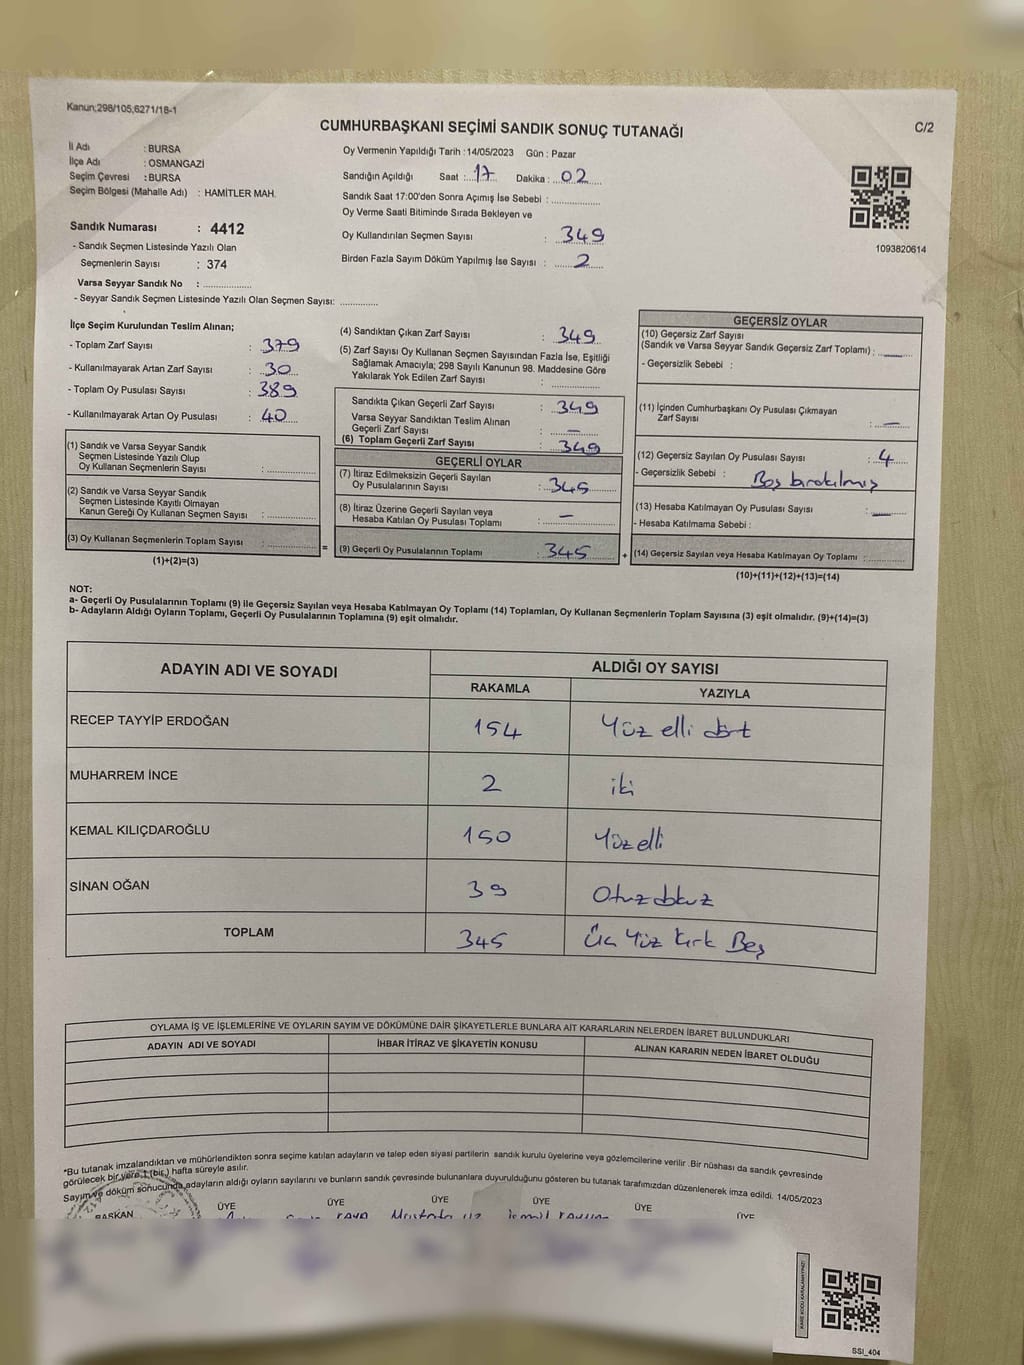 Kanun:298/105,6271/18-1
CUMHURBAŞKANI SEÇİMİ SANDIK SONUÇ TUTANAĞI
C/2
İl Adı : BURSA
İlçe Adı : OSMANGAZİ
Seçim Çevresi : BURSA
Seçim Bölgesi (Mahalle Adı) : HAMİTLER MAH.
Sandık Numarası : 4412
- Sandık Seçmen Listesinde Yazılı Olan
Seçmenlerin Sayısı : 374
Varsa Seyyar Sandık No : ..............
- Seyyar Sandık Seçmen Listesinde Yazılı Olan Seçmen Sayısı: ............
Oy Vermenin Yapıldığı Tarih : 14/05/2023 Gün : Pazar
Sandığın Açıldığı Saat : 17 Dakika : 02
Sandık Saat 17:00'den Sonra Açımış İse Sebebi : ..............
Oy Verme Saati Bitiminde Sırada Bekleyen ve
Oy Kullandırılan Seçmen Sayısı : 349
Birden Fazla Sayım Döküm Yapılmış İse Sayısı : 2
1093820614
İlçe Seçim Kurulundan Teslim Alınan;
- Toplam Zarf Sayısı : 379
- Kullanılmayarak Artan Zarf Sayısı : 30
- Toplam Oy Pusulası Sayısı : 389
- Kullanılmayarak Artan Oy Pusulası : 40
(1) Sandık ve Varsa Seyyar Sandık
Seçmen Listesinde Yazılı Olup
Oy Kullanan Seçmenlerin Sayısı : ..............
(2) Sandık ve Varsa Seyyar Sandık
Seçmen Listesinde Kayıtlı Olmayan
Kanun Gereği Oy Kullanan Seçmen Sayısı : ..............
(3) Oy Kullanan Seçmenlerin Toplam Sayısı : ..............
(1)+(2)=(3)
=
(4) Sandıktan Çıkan Zarf Sayısı : 349
(5) Zarf Sayısı Oy Kullanan Seçmen Sayısından Fazla İse, Eşitliği
Sağlamak Amacıyla; 298 Sayılı Kanunun 98. Maddesine Göre
Yakılarak Yok Edilen Zarf Sayısı : ..............
Sandıkta Çıkan Geçerli Zarf Sayısı : 349
Varsa Seyyar Sandıktan Teslim Alınan
Geçerli Zarf Sayısı : —
(6) Toplam Geçerli Zarf Sayısı : 349
GEÇERLİ OYLAR
(7) İtiraz Edilmeksizin Geçerli Sayılan
Oy Pusulalarının Sayısı : 345
(8) İtiraz Üzerine Geçerli Sayılan veya
Hesaba Katılan Oy Pusulası Toplamı : —
(9) Geçerli Oy Pusulalarının Toplamı : 345
+
GEÇERSİZ OYLAR
(10) Geçersiz Zarf Sayısı
(Sandık ve Varsa Seyyar Sandık Geçersiz Zarf Toplamı) : —
- Geçersizlik Sebebi :
(11) İçinden Cumhurbaşkanı Oy Pusulası Çıkmayan
Zarf Sayısı : —
(12) Geçersiz Sayılan Oy Pusulası Sayısı : 4
- Geçersizlik Sebebi : Boş bırakılmış
(13) Hesaba Katılmayan Oy Pusulası Sayısı : —
- Hesaba Katılmama Sebebi :
(14) Geçersiz Sayılan veya Hesaba Katılmayan Oy Toplamı : ..............
(10)+(11)+(12)+(13)=(14)
NOT:
a- Geçerli Oy Pusulalarının Toplamı (9) ile Geçersiz Sayılan veya Hesaba Katılmayan Oy Toplamı (14) Toplamları, Oy Kullanan Seçmenlerin Toplam Sayısına (3) eşit olmalıdır. (9)+(14)=(3)
b- Adayların Aldığı Oyların Toplamı, Geçerli Oy Pusulalarının Toplamına (9) eşit olmalıdır.
ADAYIN ADI VE SOYADI ALDIĞI OY SAYISI
RAKAMLA YAZIYLA
RECEP TAYYİP ERDOĞAN 154 Yüz elli dört
MUHARREM İNCE 2 iki
KEMAL KILIÇDAROĞLU 150 Yüz elli
SİNAN OĞAN 39 Otuz dokuz
TOPLAM 345 Üç Yüz Kırk Beş
OYLAMA İŞ VE İŞLEMLERİNE VE OYLARIN SAYIM VE DÖKÜMÜNE DAİR ŞİKAYETLERLE BUNLARA AİT KARARLARIN NELERDEN İBARET BULUNDUKLARI
ADAYIN ADI VE SOYADI İHBAR İTİRAZ VE ŞİKAYETİN KONUSU ALINAN KARARIN NEDEN İBARET OLDUĞU
*Bu tutanak imzalandıktan ve mühürlendikten sonra seçime katılan adayların ve talep eden siyasi partilerin sandık kurulu üyelerine veya gözlemcilerine verilir .Bir nüshası da sandık çevresinde
görülecek bir yere 1 (bir) hafta süreyle asılır.
Sayım ve döküm sonucunda adayların aldığı oyların sayılarını ve bunların sandık çevresinde bulunanlara duyurulduğunu gösteren bu tutanak tarafımızdan düzenlenerek imza edildi. 14/05/2023
BAŞKAN ÜYE ÜYE ÜYE ÜYE ÜYE ÜYE
KARE KODU KARALAMAYINIZ!
SSI_404